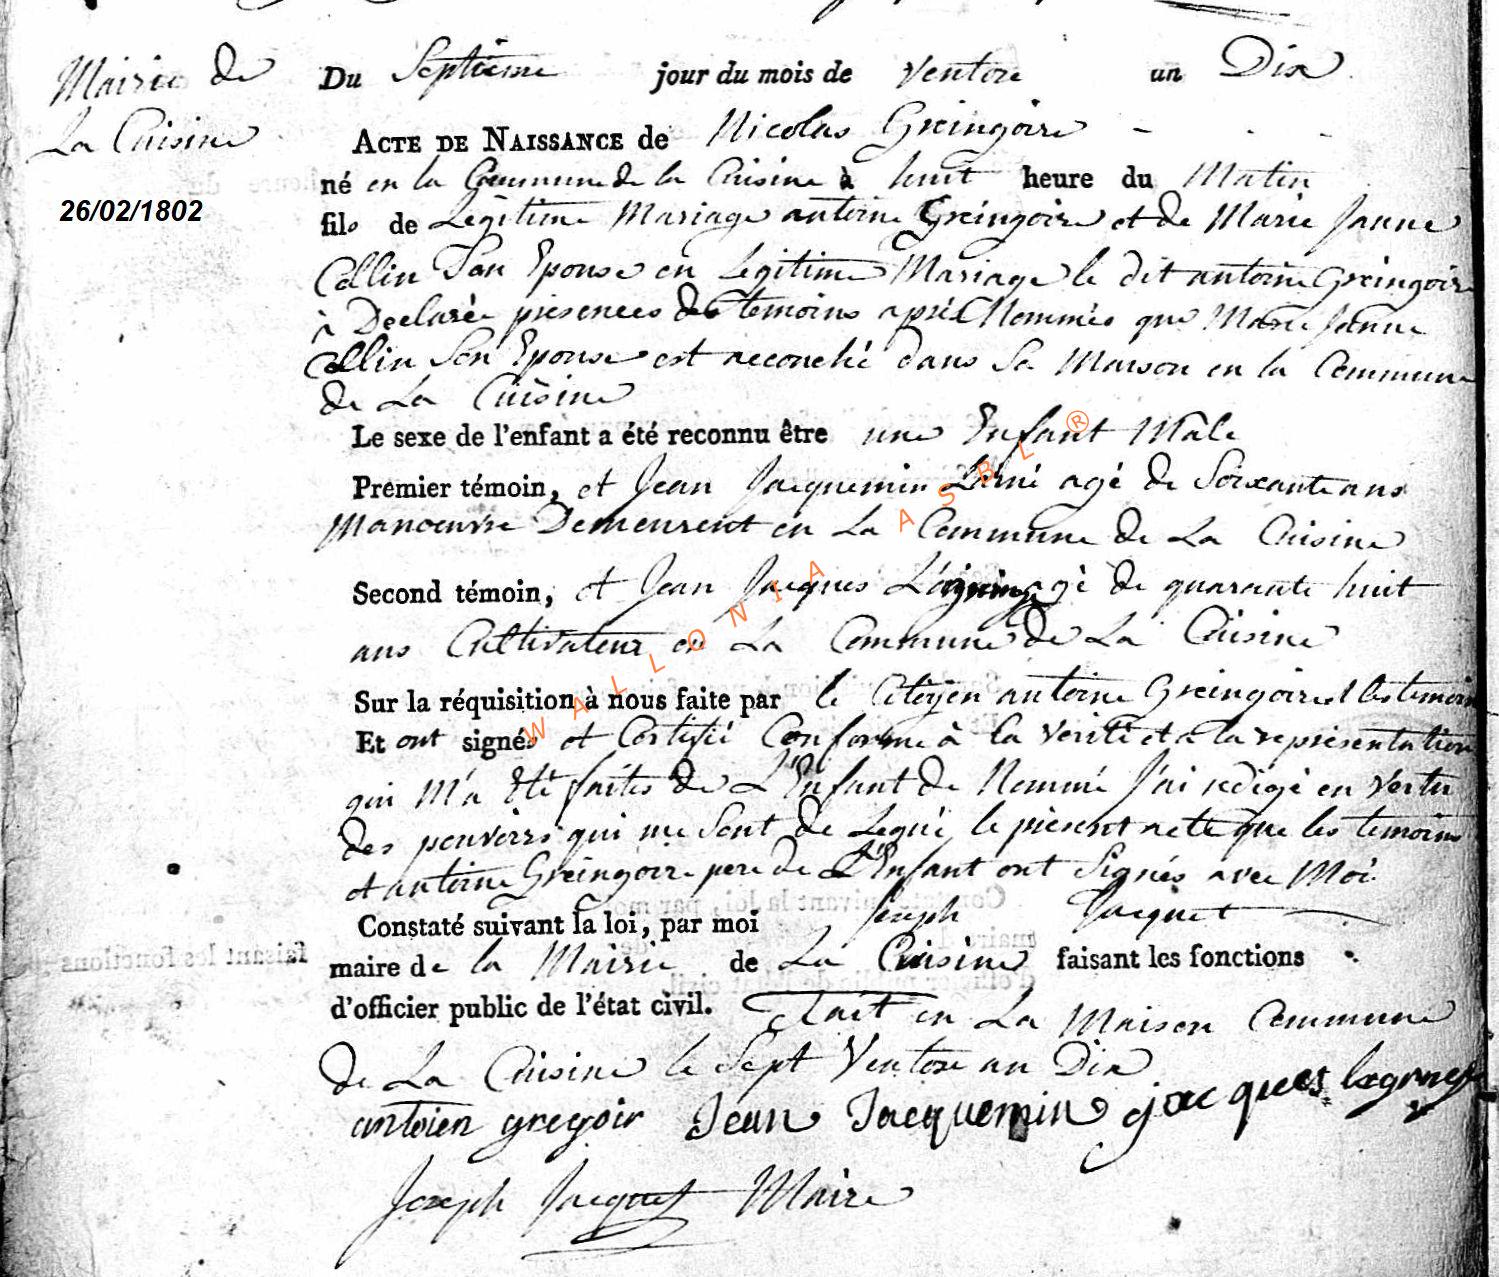 Mairie de
La Cuisine
26/02/1802
Du Septieme jour du mois de Ventose an Dix
ACTE DE NAISSANCE de Nicolas Greingoire
né en la Commune de la Cuisine à huit heure du Matin
fils de Légitime Mariage antoine Greingoire et de Marie Janne
Collin Son Epouse en Légitime Mariage le dit antoine Greingoire
à Declarée presences des temoins après Nommés que Marie Janne
Collin Son Epouse est accouché dans Sa Maison en la Commune
de La Cuisine
Le sexe de l'enfant a été reconnu être une Enfant Male
Premier témoin, et Jean Jacquemin L'ainé agé de Soixante ans
Manoeuvre Demeurent en La Commune de La Cuisine
Second témoin, et Jean Jacques agé de quarante huit
ans Cultivateur en La Commune de La Cuisine
Sur la réquisition à nous faite par le Citoyen antoine Greingoire et les temoins
Et ont signés et Certifié Conforme à la Verité et a la representation
qui M'a Eté faites de L'Enfant De Nommé J'ai redigé en Vertu
des pouvoirs qui me Sont De Legué le présent acte que les temoins
et antoine Greingoire pere de L'Enfant ont Signés avec Moi
Constaté suivant la loi, par moi Joseph Jacquet
maire de la Mairie de La Cuisine faisant les fonctions
d'officier public de l'état civil. Fait en La Maison Commune
de La Cuisine le Sept Ventose an Dix
antoien gregoir Jean Jacquemin jacques
Joseph Jacquet Maire
WALLONIA ASBL ®